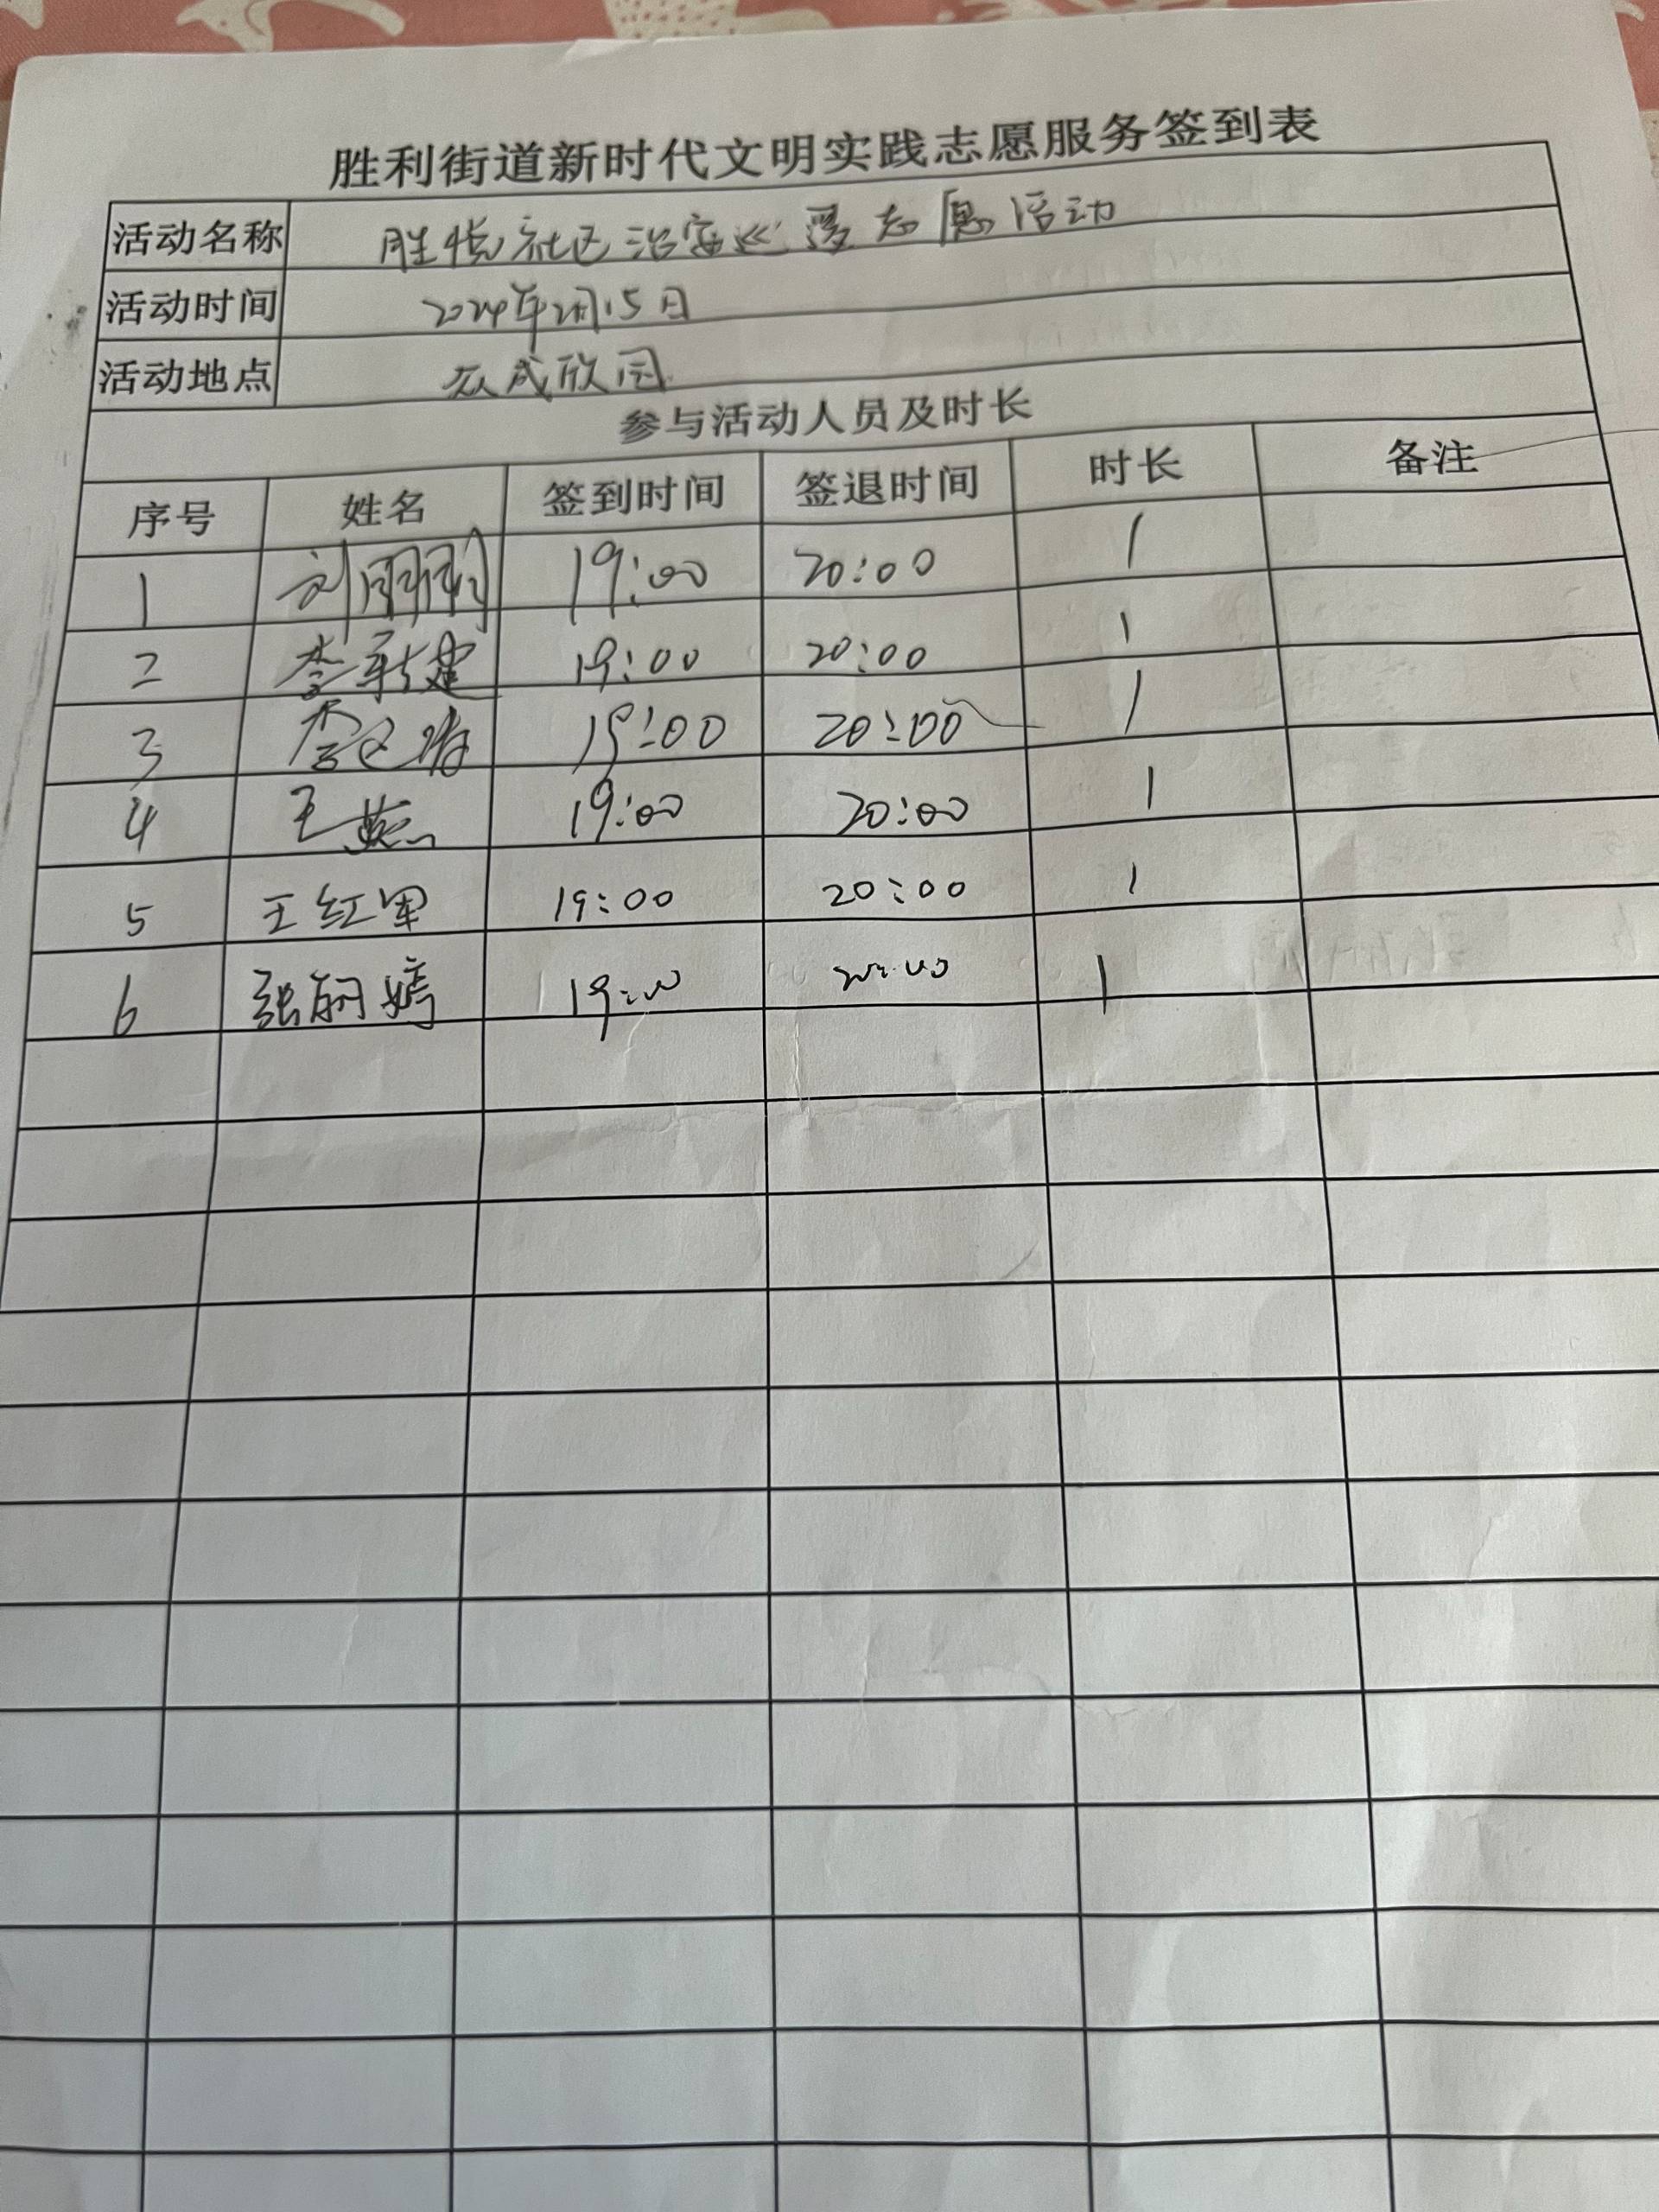 胜利街道新时代文明实践志愿服务签到表
活动名称 胜悦社区治安巡逻志愿活动
活动时间 2024年2月15日
活动地点 众成欣园
参与活动人员及时长
序号 姓名 签到时间 签退时间 时长 备注
1 刘 19:00 20:00 1
2 李新建 19:00 20:00 1
3 李 19:00 20:00 1
4 王燕 19:00 20:00 1
5 王红军 19:00 20:00 1
6 张丽婷 19:00 20:00 1